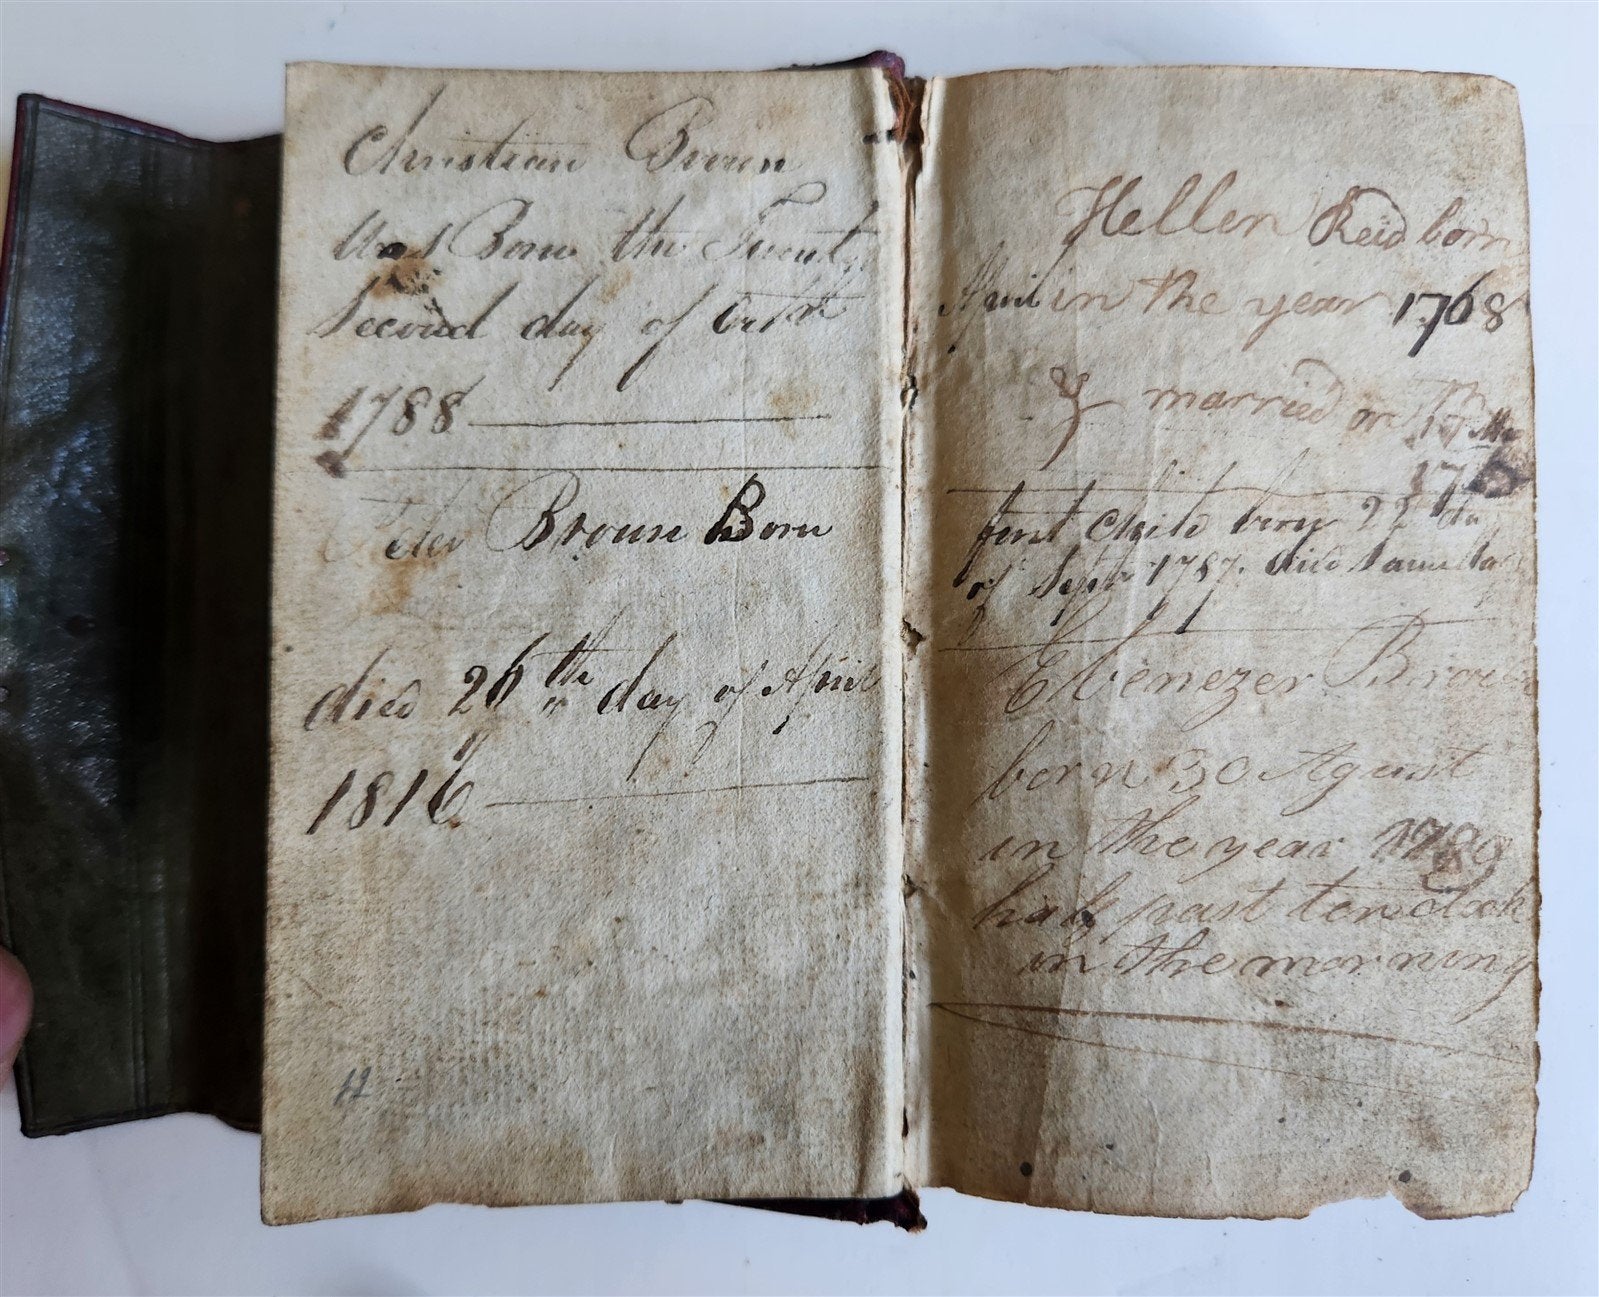 Christian Broun
Was Born the Twenty
Second day of
1788
Peter Broun Born
died 26th day of April
1816
12
Hellen Reid born
April in the year 1768
& married on
first child born 22 da
of Sept 1787. died same da
Ebenezer Broun
born 30 Agust
in the year 1789
half past ten clock
in the morning